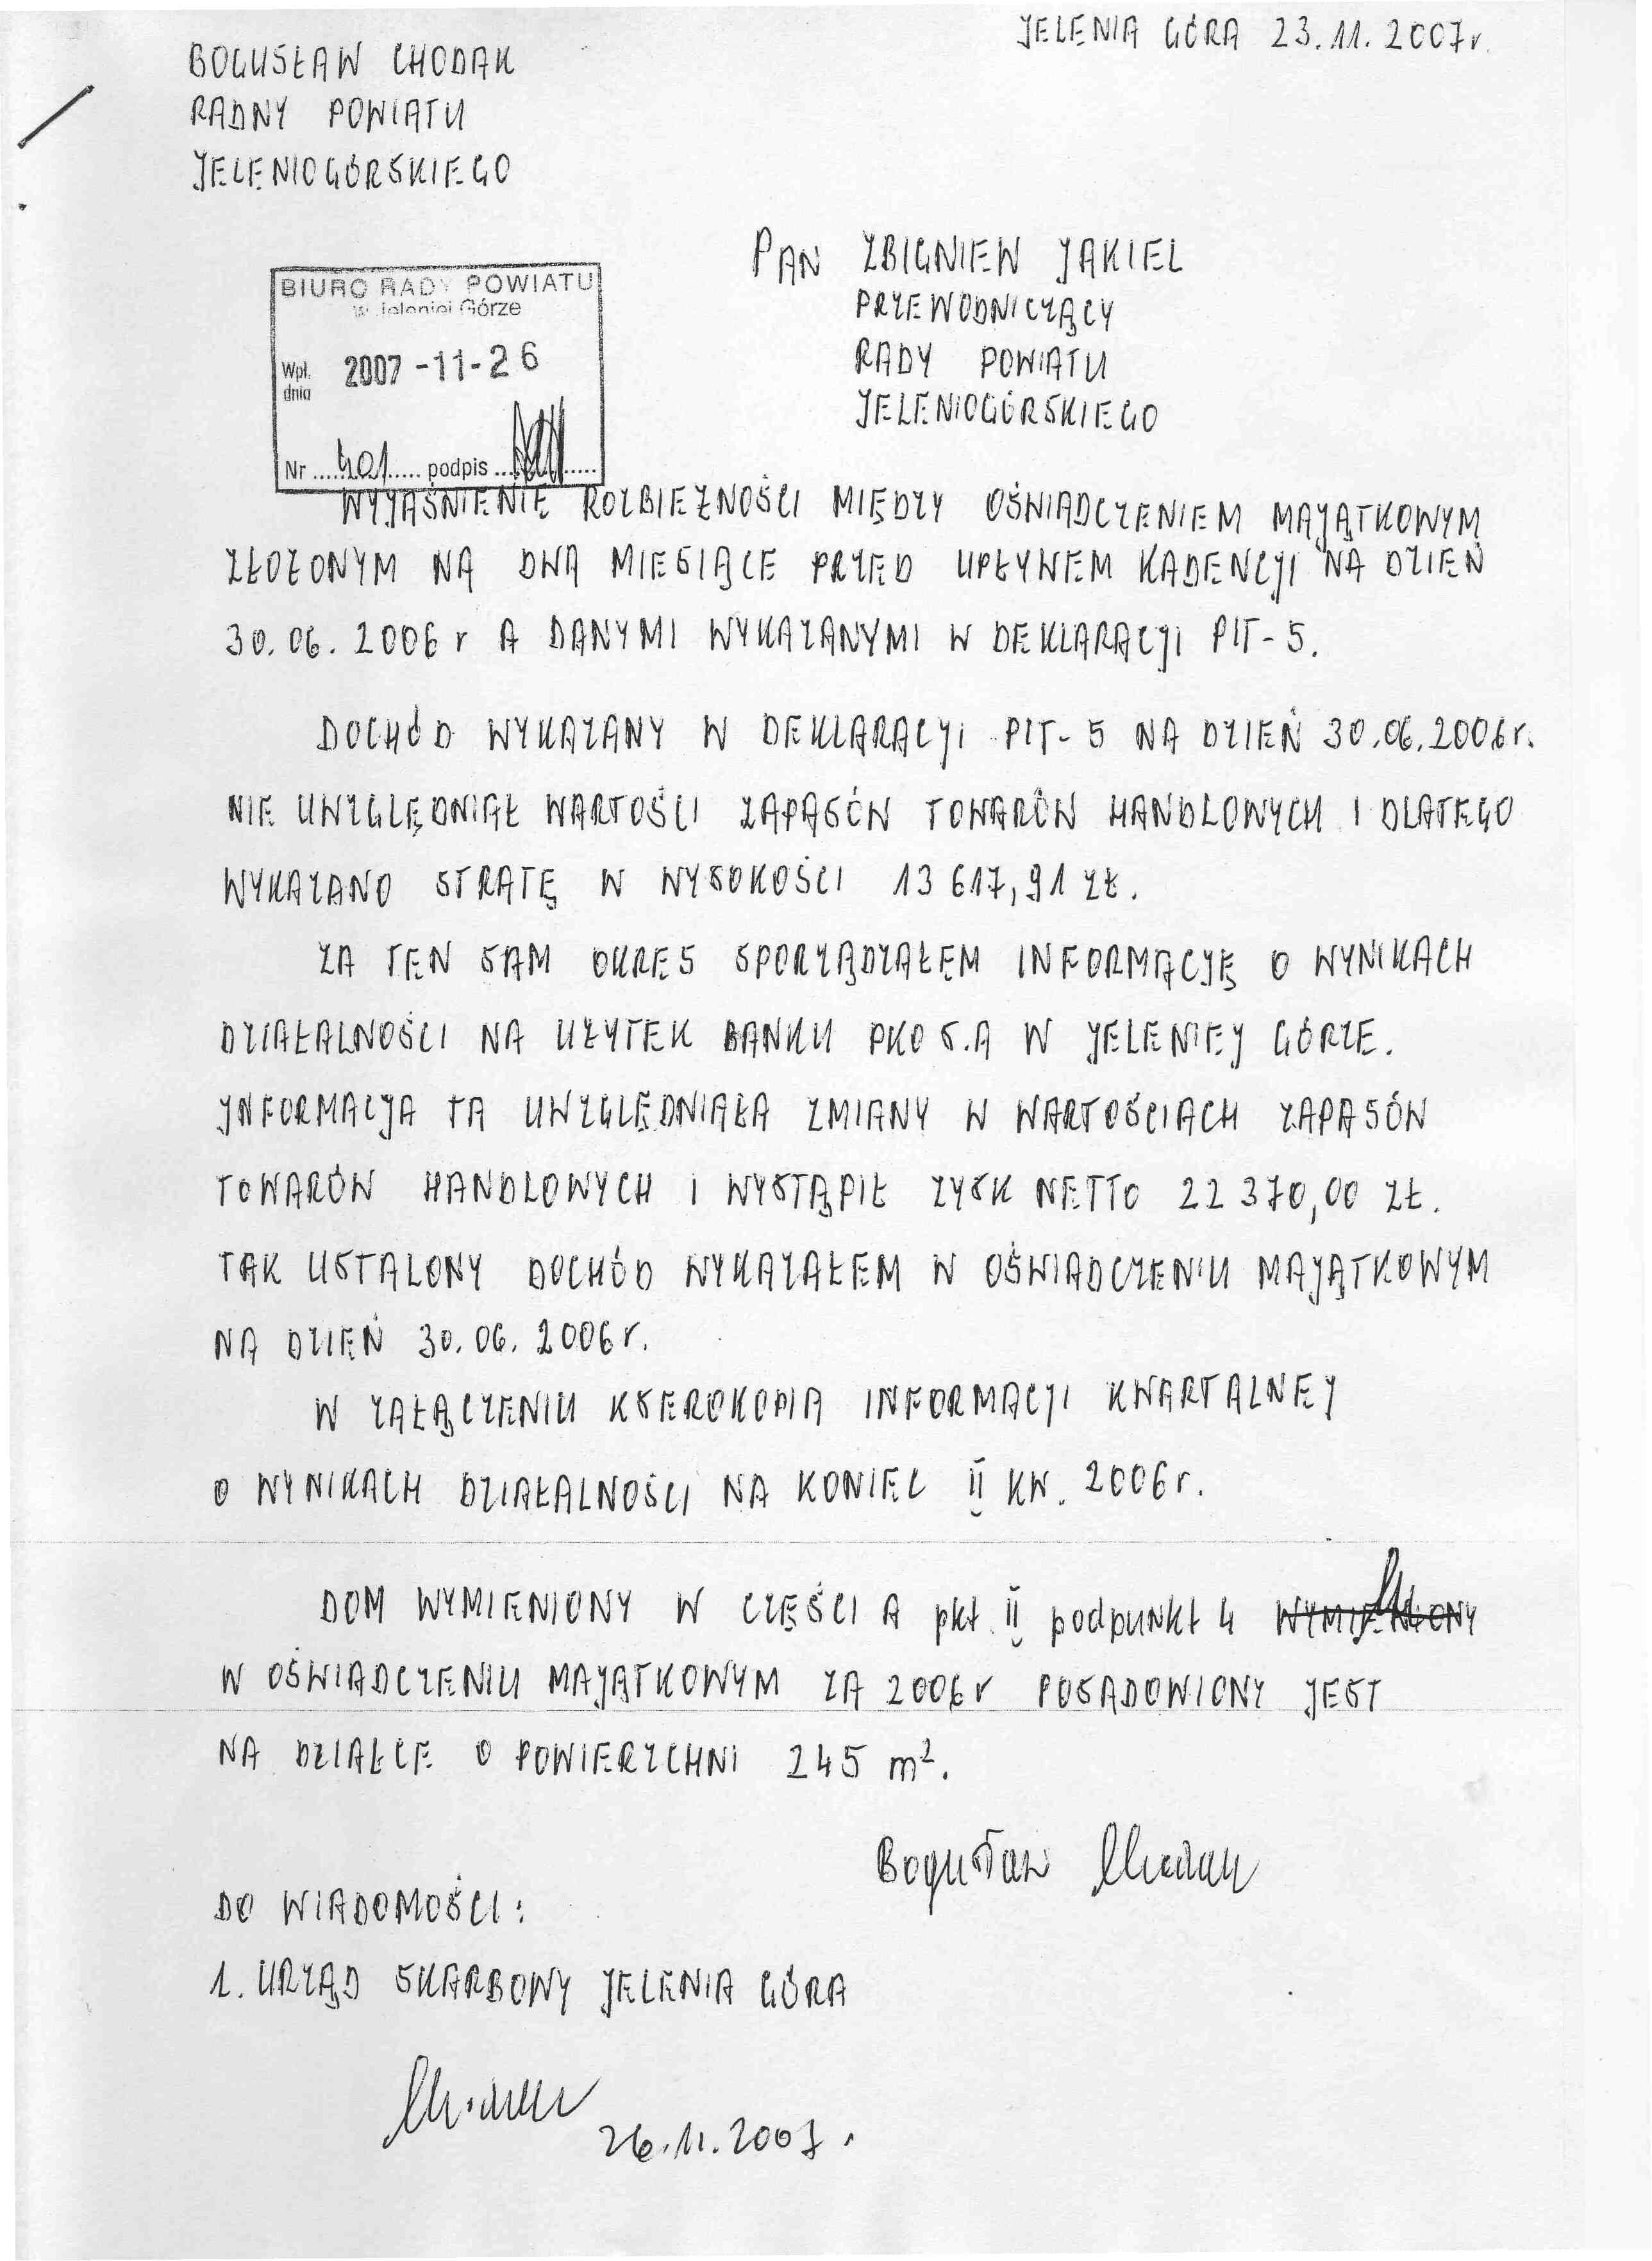 JELENIA GÓRA 23.11.2007r.
BOGUSŁAW CHODAK
RADNY POWIATU
JELENIOGÓRSKIEGO
PAN ZBIGNIEW JAKIEL
PRZEWODNICZĄCY
RADY POWIATU
JELENIOGÓRSKIEGO
BIURO RADY POWIATU
w Jeleniej Górze
Wpł. dnia 2007-11-26
Nr 401 podpis
WYJAŚNIENIE ROZBIEŻNOŚCI MIĘDZY OŚWIADCZENIEM MAJĄTKOWYM
ZŁOŻONYM NA DWA MIESIĄCE PRZED UPŁYWEM KADENCJI NA DZIEŃ
30.06.2006r A DANYMI WYKAZANYMI W DEKLARACJI PIT-5.
DOCHÓD WYKAZANY W DEKLARACJI PIT-5 NA DZIEŃ 30.06.2006r.
NIE UWZGLĘDNIAŁ WARTOŚCI ZAPASÓW TOWARÓW HANDLOWYCH I DLATEGO
WYKAZANO STRATĘ W WYSOKOŚCI 13 617,91 ZŁ.
ZA TEN SAM OKRES SPORZĄDZAŁEM INFORMACJĘ O WYNIKACH
DZIAŁALNOŚCI NA UŻYTEK BANKU PKO S.A W JELENIEJ GÓRZE.
INFORMACJA TA UWZGLĘDNIAŁA ZMIANY W WARTOŚCIACH ZAPASÓW
TOWARÓW HANDLOWYCH I WYSTĄPIŁ ZYSK NETTO 22 370,00 ZŁ.
TAK USTALONY DOCHÓD WYKAZAŁEM W OŚWIADCZENIU MAJĄTKOWYM
NA DZIEŃ 30.06.2006r.
W ZAŁĄCZENIU KSEROKOPIA INFORMACJI KWARTALNEJ
O WYNIKACH DZIAŁALNOŚCI NA KONIEC II KW. 2006r.
DOM WYMIENIONY W CZĘŚCI A pkt II podpunkt 4 WYMIENIONY
W OŚWIADCZENIU MAJĄTKOWYM ZA 2006r POSADOWIONY JEST
NA DZIAŁCE O POWIERZCHNI 245 m².
Bogusław Chodak
DO WIADOMOŚCI:
1. URZĄD SKARBOWY JELENIA GÓRA
Chodak
26.11.2007.